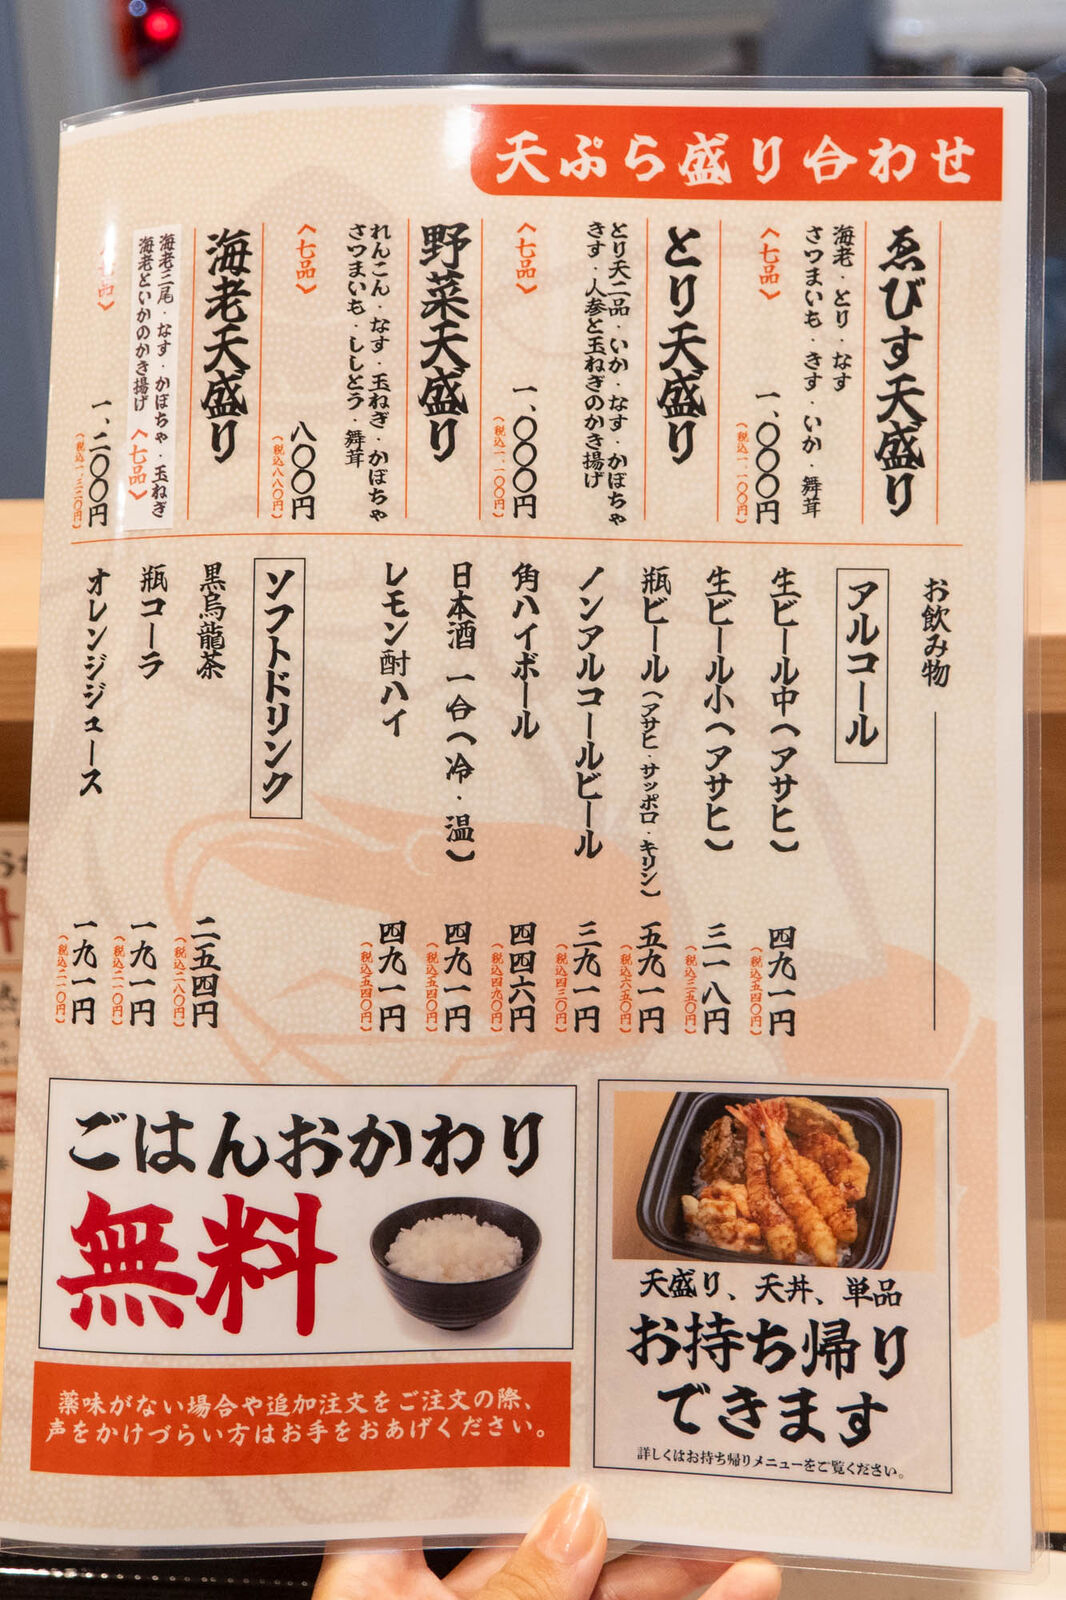 天ぷら盛り合わせ
ゑびす天盛り
海老・とり・なす
さつまいも・きす・いか・舞茸
〈七品〉
一、〇〇〇円
(税込一、一〇〇円)
とり天盛り
とり天二品・いか・なす・かぼちゃ
きす・人参と玉ねぎのかき揚げ
〈七品〉
一、〇〇〇円
(税込一、一〇〇円)
野菜天盛り
れんこん・なす・玉ねぎ・かぼちゃ
さつまいも・ししとう・舞茸
〈七品〉
八〇〇円
(税込八八〇円)
海老天盛り
海老三尾・なす・かぼちゃ・玉ねぎ
海老といかのかき揚げ〈七品〉
品〉
一、二〇〇円
(税込一、三二〇円)
お飲み物
アルコール
生ビール中(アサヒ) 四九一円
(税込五四〇円)
生ビール小(アサヒ) 三一八円
(税込三五〇円)
瓶ビール(アサヒ・サッポロ・キリン) 五九一円
(税込六五〇円)
ノンアルコールビール 三九一円
(税込四三〇円)
角ハイボール 四四六円
(税込四九〇円)
日本酒 一合(冷・温) 四九一円
(税込五四〇円)
レモン酎ハイ 四九一円
(税込五四〇円)
ソフトドリンク
黒烏龍茶 二五四円
(税込二八〇円)
瓶コーラ 一九一円
(税込二一〇円)
オレンジジュース 一九一円
(税込二一〇円)
ごはんおかわり
無料
薬味がない場合や追加注文をご注文の際、
声をかけづらい方はお手をおあげください。
天盛り、天丼、単品
お持ち帰り
できます
詳しくはお持ち帰りメニューをご覧ください。